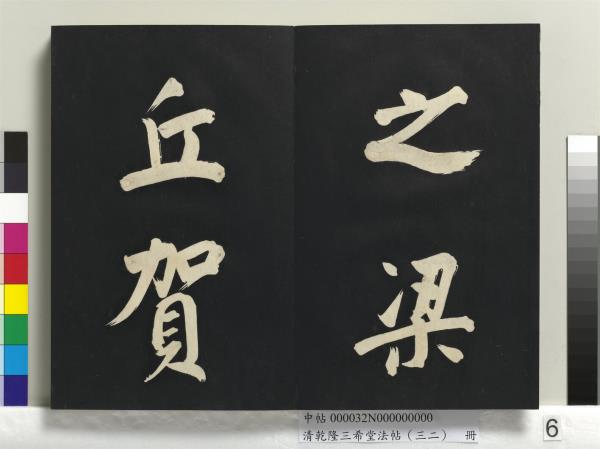 之梁
丘賀
中帖 000032N000000000
清乾隆三希堂法帖（三二） 冊
6